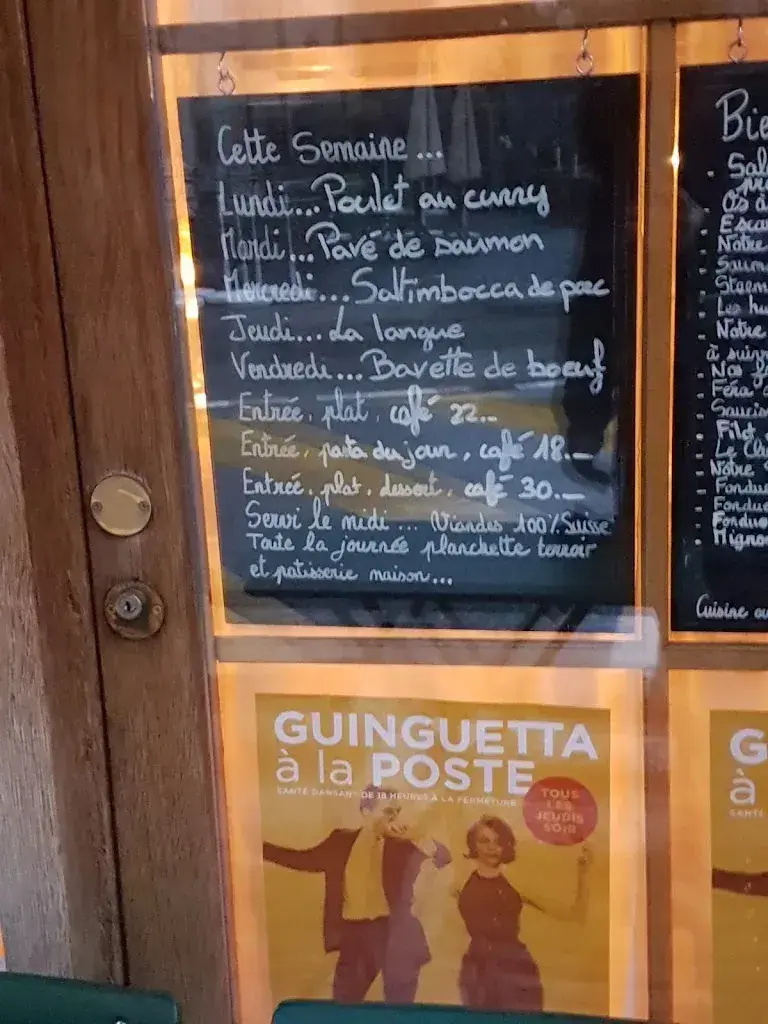 Cette Semaine...
Lundi... Poulet au curry
Mardi... Pavé de saumon
Mercredi... Saltimbocca de porc
Jeudi... La langue
Vendredi... Bavette de boeuf
Entrée, plat, café 22.-
Entrée, pasta du jour, café 18.-
Entrée, plat, dessert, café 30.-
Servi le midi... Viandes 100% Suisse
Toute la journée planchette terroir
et patisserie maison...
Bie
Sal
Os à
Esca
Notre
Saum
Les hu
Notre
à suiv
Féra
Saucis
Filet
Notre
Fondue
Fondue
Fondue
Migno
Cuisine ou
GUINGUETTA
à la POSTE
SANTÉ DANSANT DE 18 HEURES À LA FERMETURE
TOUS
LES
JEUDIS
SOIR
G
à
SANTÉ